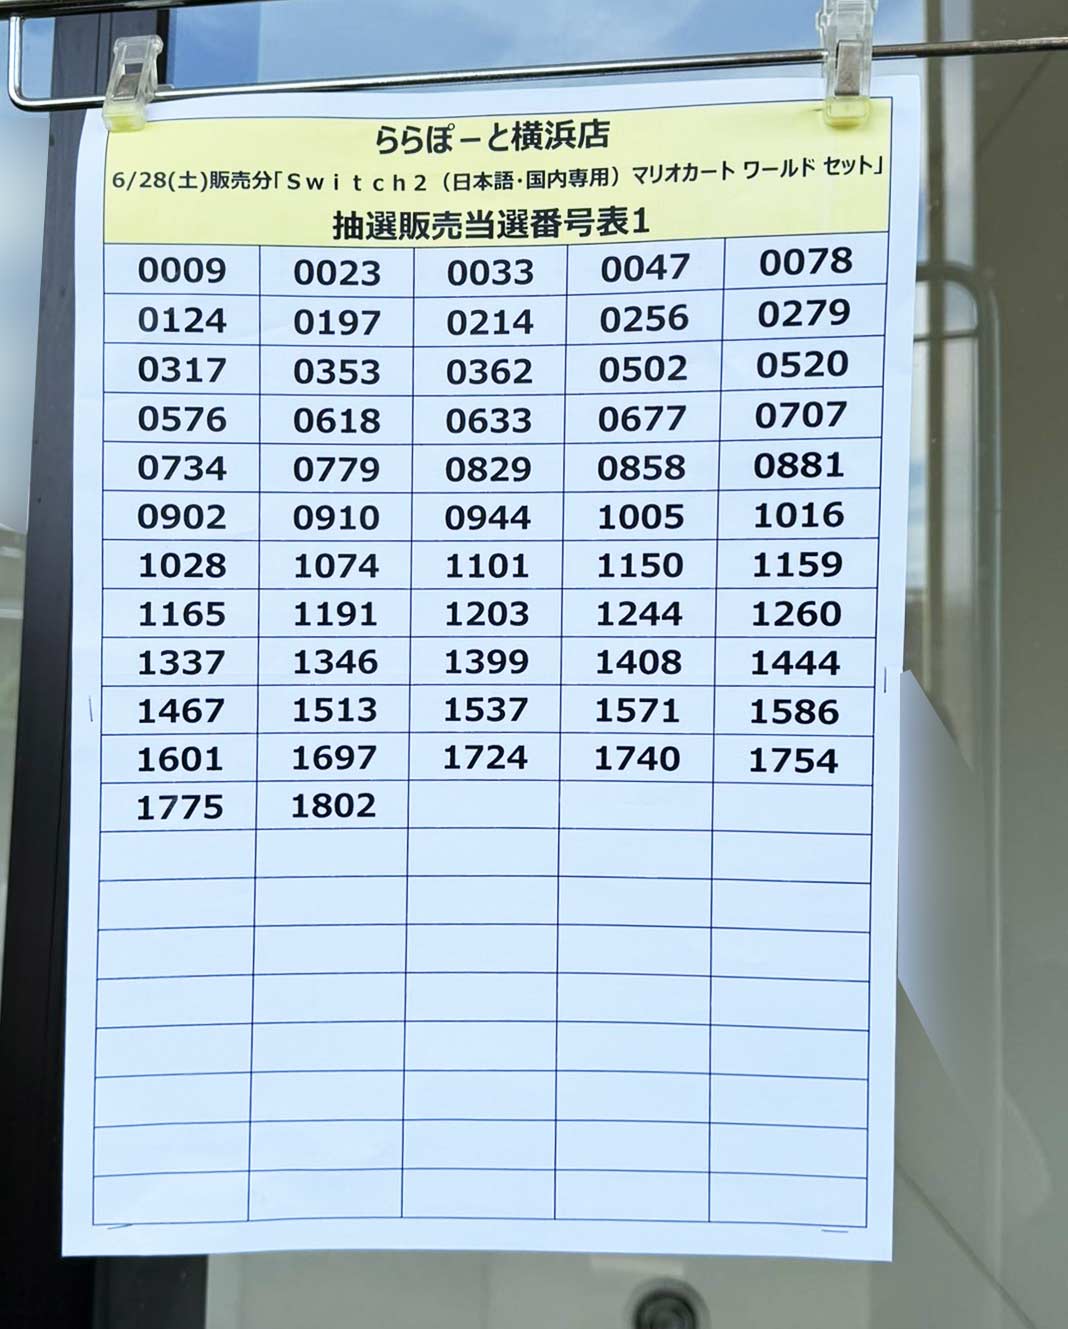 ららぽーと横浜店
6/28(土)販売分「Ｓｗｉｔｃｈ２（日本語・国内専用）マリオカート ワールド セット」
抽選販売当選番号表1
0009 0023 0033 0047 0078
0124 0197 0214 0256 0279
0317 0353 0362 0502 0520
0576 0618 0633 0677 0707
0734 0779 0829 0858 0881
0902 0910 0944 1005 1016
1028 1074 1101 1150 1159
1165 1191 1203 1244 1260
1337 1346 1399 1408 1444
1467 1513 1537 1571 1586
1601 1697 1724 1740 1754
1775 1802